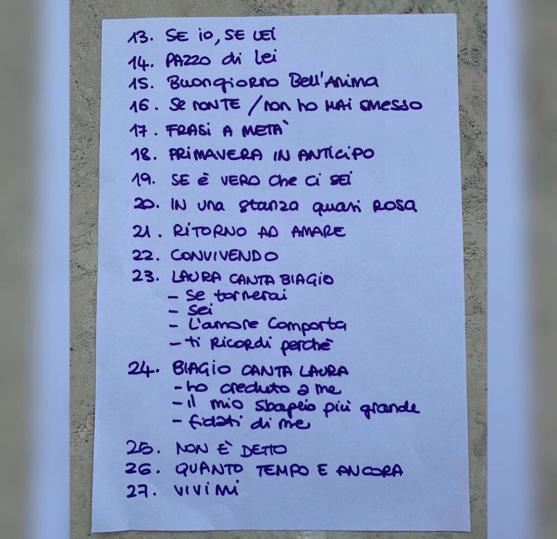 13. SE io, SE LEi
14. PAZZO di lei
15. Buongiorno Bell'Anima
16. Se non TE / non ho MAi smesso
17. FRASI A METÀ
18. PRIMAVERA IN ANTICIPO
19. SE è VERO che ci sei
20. IN una stanza quasi ROSA
21. RITORNO AD AMARE
22. CONVIVENDO
23. LAURA CANTA BIAGIO
- se tornerai
- sei
- L'amore Comporta
- ti Ricordi perchè
24. BIAGIO CANTA LAURA
- ho creduto a me
- il mio sbaglio più grande
- fidati di me
25. NON È DETTO
26. QUANTO TEMPO E ANCORA
27. ViViMi